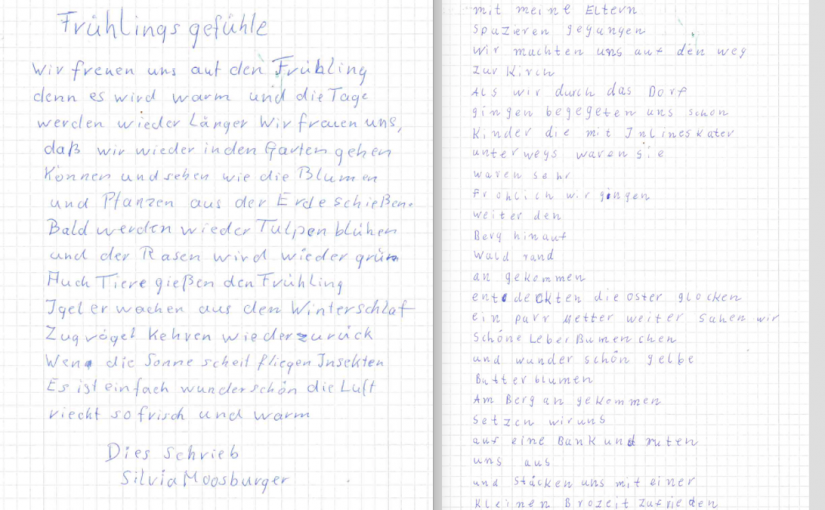 Frühlingsgefühle
Wir freuen uns auf den Frühling
denn es wird warm und die Tage
werden wieder Länger Wir frauen uns,
daß wir wieder in den Garten gehen
Können und sehen wie die Blumen
und Pflanzen aus der Erde schießen.
Bald werden wieder Tulpen blühen
und der Rasen wird wieder grün
Auch Tiere gießen den Frühling
Igel er wachen aus dem Winterschlaf
Zugvögel Kehren wieder zurück
Wen die Sonne scheit fliegen Insekten
Es ist einfach wunderschön die Luft
riecht so frisch und warm
Dies schrieb
Silvia Moosburger
mit meine Eltern
Spazieren gegangen
Wir machten uns auf den weg
Zur Kirch
Als wir durch das Dorf
gingen begegeten uns schon
Kinder die mit Inlineskater
unterwegs waren sie
waren sehr
Fröhlich wir gingen
weiter den
Berg hinauf
Wald rand
an gekommen
entdeckten die oster glocken
ein parr Metter weiter Sahen wir
Schöne Leber Bumen chen
und wunder schön gelbe
Butter blumen
Am Berg an gekommen
Setzen wir uns
auf eine Bank und ruten
uns aus
und Stäcken uns mit einer
Kleinen Brozeit Zufrieden